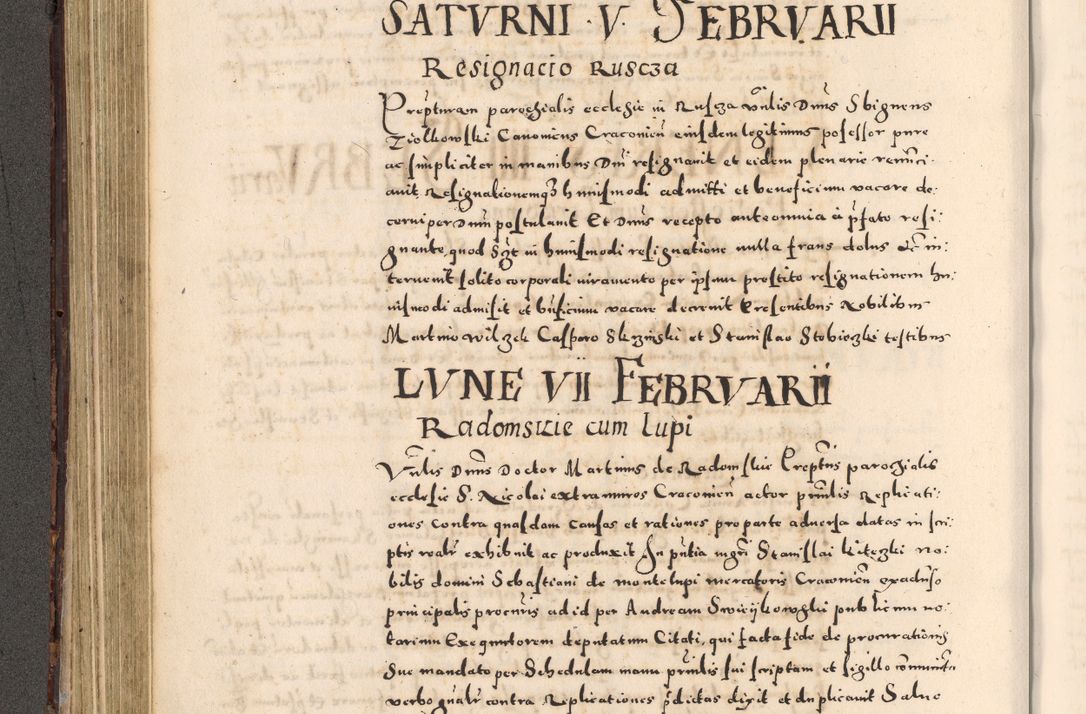 SATVRNI · V · FEBRVARII
Resignacio Ruscza
Prepturam parochialis ecclesie in Rusza Vnlis Dnus Sbigneus
Ziolkowski Canonicus Cracovien eiusdem legitimus possessor pure
ac simpliciter in manibus Dni resignavit et eidem plenarie renunci-
avit, Resignationemq3 huiusmodi admitti et beneficium vacare de-
cerni per Dnum postulavit Et Dnus recepto ante omnia à pfato resi-
gnante, quod in huiusmodi resignatione nulla fraus dolus in-
tervenit solito corporali iuramento per ipsum prestito resignationem hu-
iusmodi admisit et bnficium vacare decrevit Presentibus Nobilibus
Martino Wilzek Casparo Skrzinski et Stanislao Stobieczki testibus
LVNE VII FEBRVARII
Radomszie cum lupi
Vnlis Dnus Doctor Martinus de Radomskie Preptus parochialis
ecclesie S. Nicolai extra muros Cracovien actor pnnlis Replicati-
ones contra quasdam causas et rationes pro parte adversa datas in scri-
ptis realr exhibuit ac produxit In pntia mgri Stanislai kitezki no-
bilis domini Sebastiani de montelupi mercatoris Cracovien ex adverso
principalis procuris ad id per Andream Swieykowski publicum no-
tarium Exequutorem deputatum Citati, qui facta fide de procurationis
sue mandato per Schedulam manu pnnlis sui scriptam et sigillo
verbo gnalr contra Replicationes pdictas dixit et duplicavit Salvo